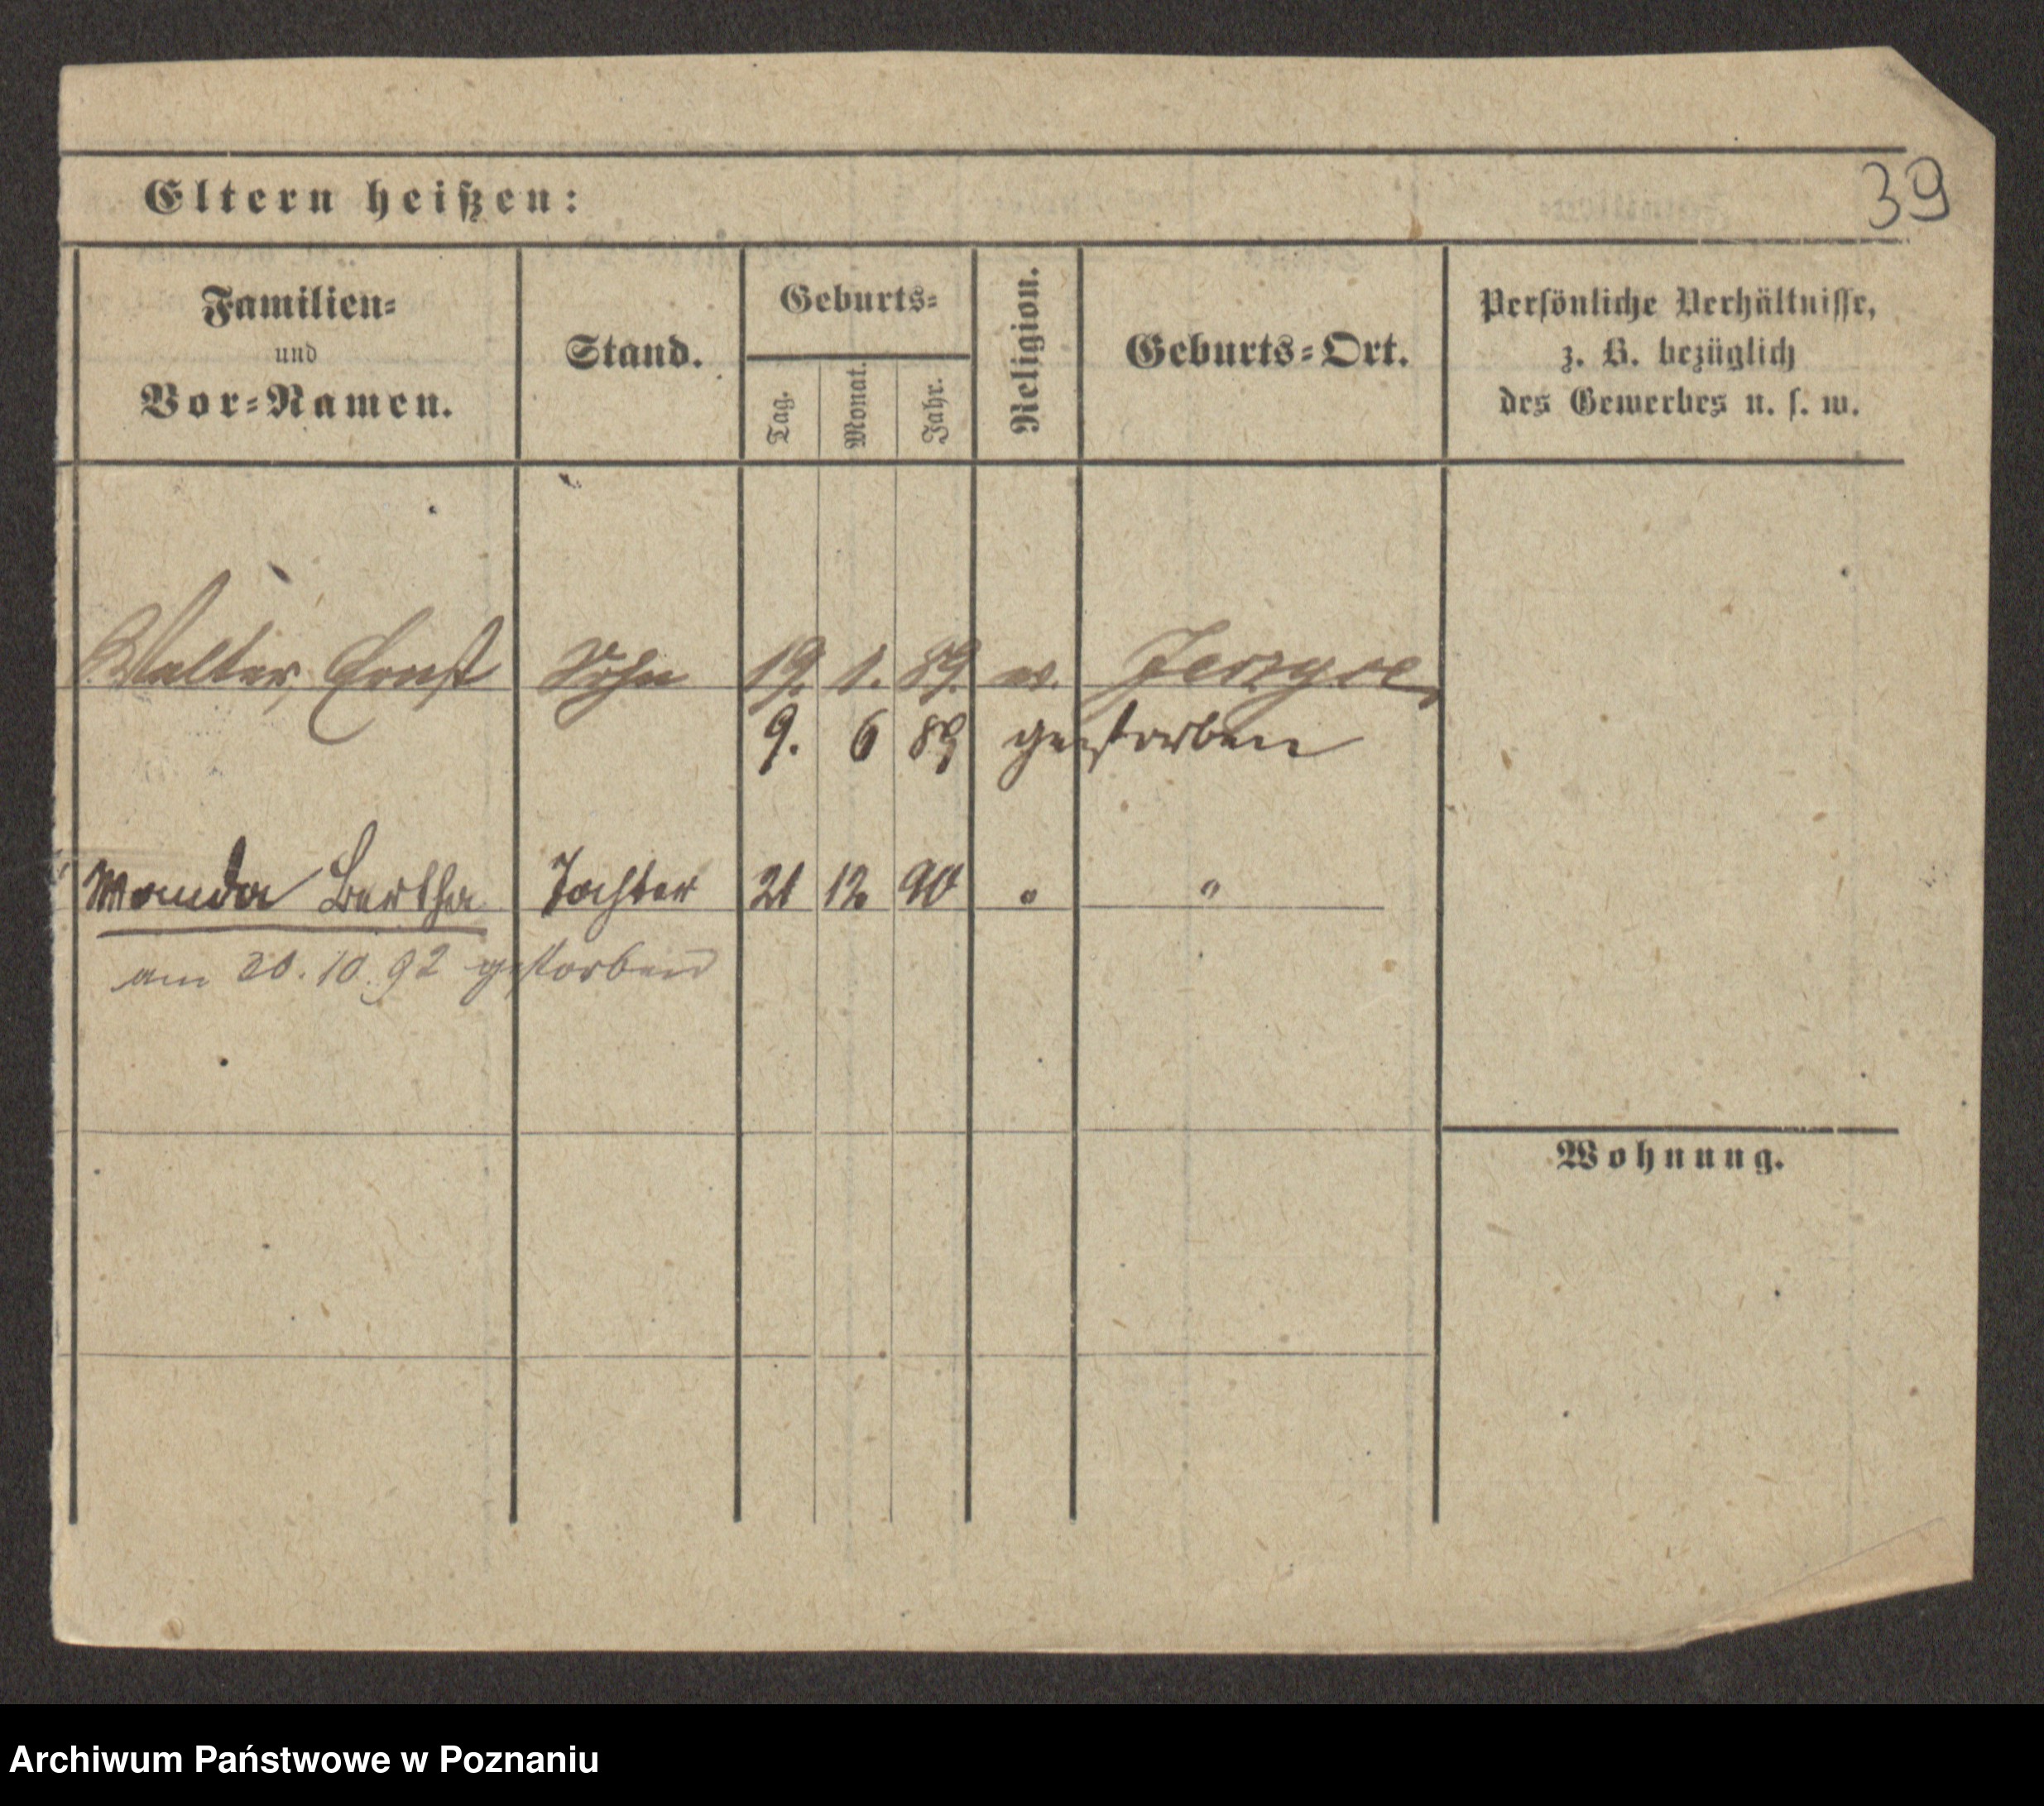 39
Eltern heißen:
Familien=
und
Vor=Namen.
Stand.
Geburts=
Tag.
Monat.
Jahr.
Religion.
Geburts=Ort.
Persönliche Verhältnisse,
z. B. bezüglich
des Gewerbes u. s. w.
Walter, Ernst Sohn 19. 1. 89. ev.
9. 6 89 gestorben
Wanda Bertha Tochter 21 12 90 " "
am 20.10.92 gestorben
Wohnung.
Archiwum Państwowe w Poznaniu